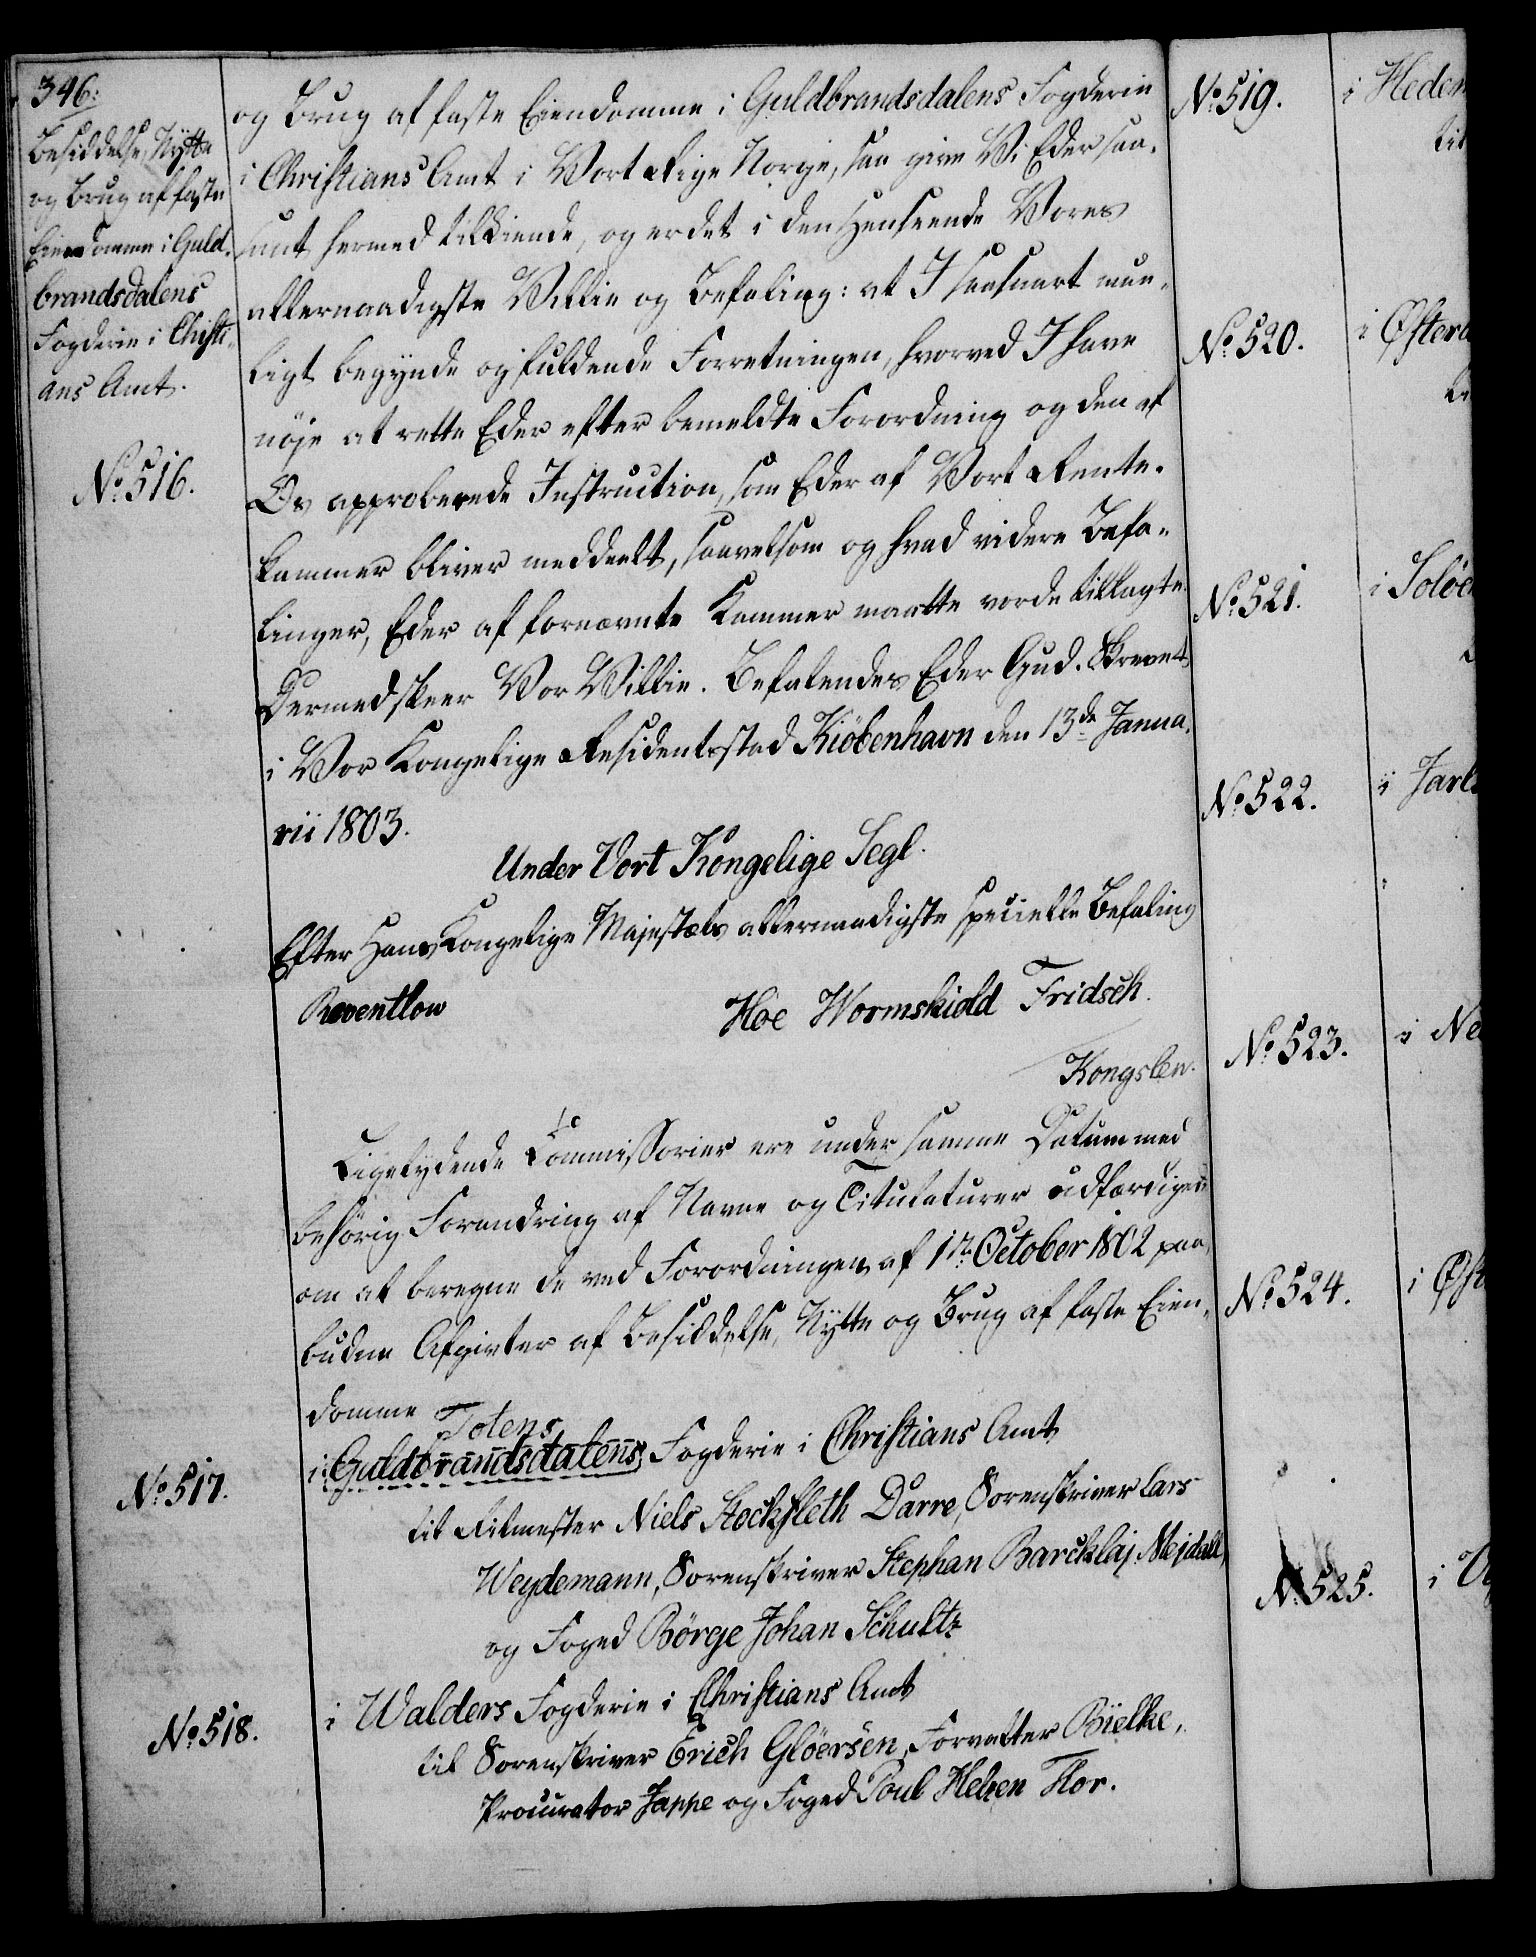 346:
Besiddelse, Nytte
og Brug af faste
Eiendomme i Guld-
brandsdalens
Fogderie i Christi-
ans Amt.
No 516.
og Brug af faste Eiendomme i Guldbrandsdalens Fogderie
i Christians Amt i Vort Rige Norge, saa give Vi Eder saa-
mt hermed tilkiende, og er det i den Henseende Vores
allernaadigste Villie og Befaling: at I saasnart mue-
ligt begynde og fuldende Forretningen, hvorved I have
nøje at rette Eder efter bemeldte Forordning og den af
Os approberede Instruction, som Eder af Vort Rente-
kammer bliver meddeelt, saavelsom og hvad videre Befa-
linger, Eder af fornævnte Kammer maatte vorde tillagte.
Dermed skeer Vor Villie. Befalendes Eder Gud. Skrevet
i Vor Kongelige Residentsstad Kiöbenhavn den 13de Janua-
rii 1803.
Under Vort Kongelige Segl.
Efter Hans Kongelige Majestæts allernaadigste specielle Befaling
Reventlow Hoe Wormskiold Fridsch.
Kongslev.
Ligelydende Commissorier ere under samme Datum med
behörig Forandring af Navne og Titulaturer udfærdiget
om at beregne de ved Forordningen af 1te October 1802 paa-
budne Afgivter af Besiddelse, Nytte og Brug af faste Eien-
domme
Totens
No 517.
i Guldbrandsdalens Fogderie i Christians Amt
til Ritmester Niels Stockfleth Darre, Sorenskriver Lars
Weydemann, Sorenskriver Stephan Barcklaj Mejdell,
og Foged Börge Johan Schultz
No 518.
i Walders Fogderie i Christians Amt
til Sorenskriver Erich Glöersen, Forvalter Bielke,
Procurator Jappe og Foged Poul Helzen Flor.
No 519.
i Hedem
til
No 520.
i Østerd
No 521.
i Solöe
No 522.
i Jarls
No 523.
i Ne
No 524.
i Øst
No 525.
i